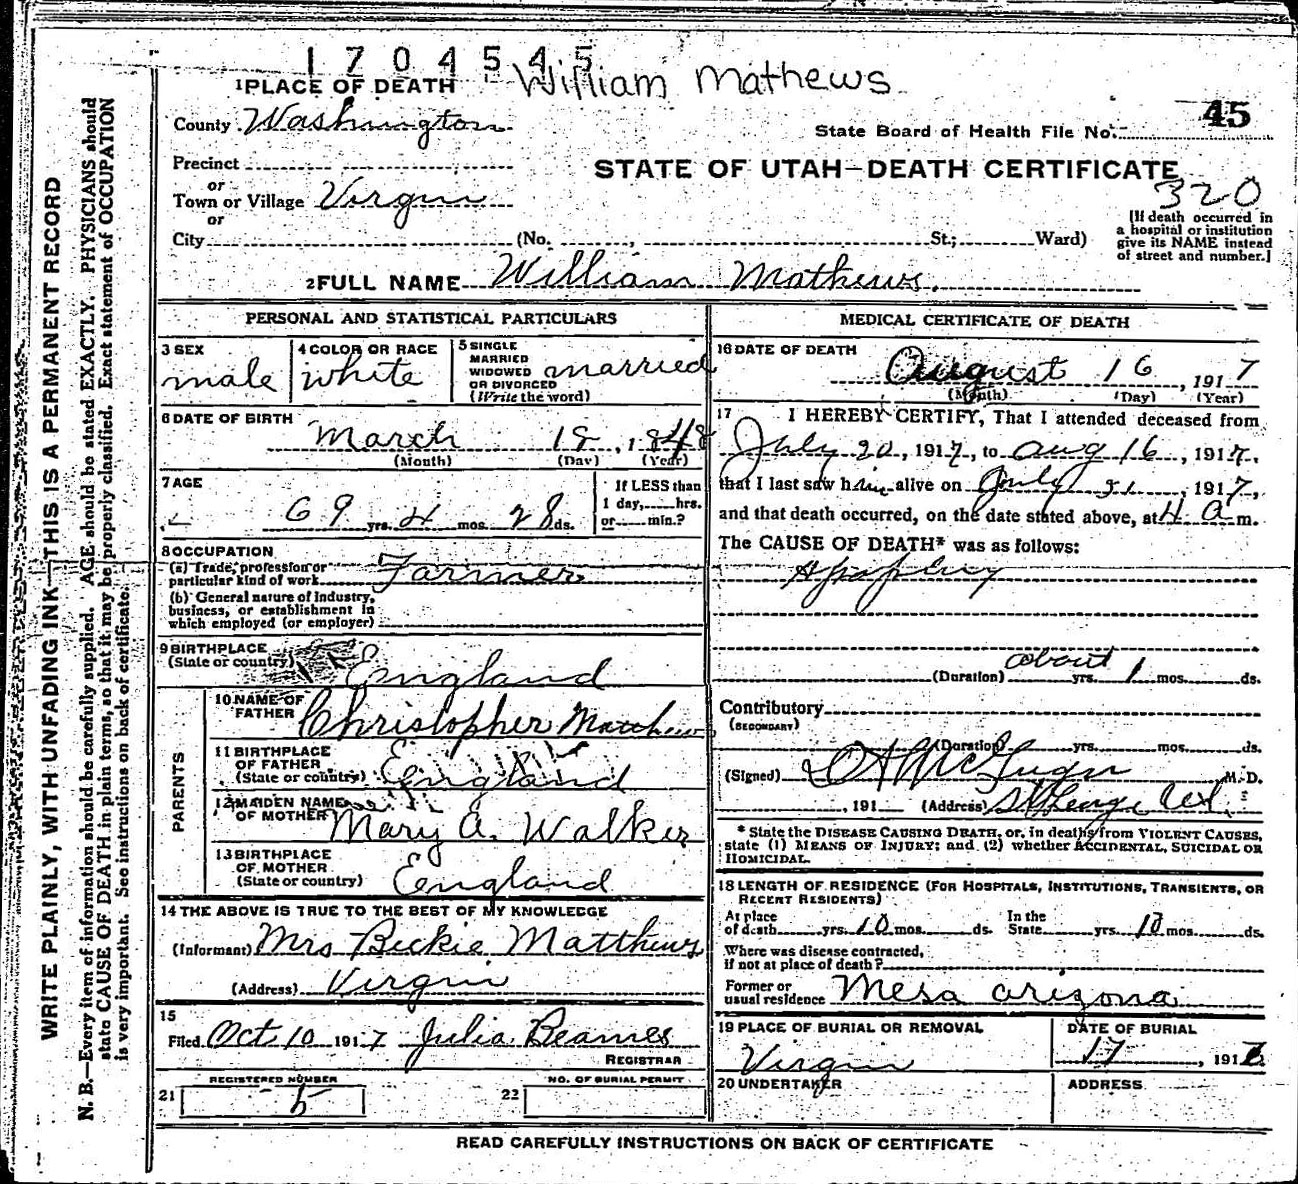 1704545
William Mathews
1PLACE OF DEATH
County Washington
45
State Board of Health File No.
Precinct
STATE OF UTAH—DEATH CERTIFICATE
or
Town or Village Virgin
320
or
City (No. , St.; Ward)
[If death occurred in
a hospital or institution
give its NAME instead
of street and number.]
2FULL NAME William Mathews.
PERSONAL AND STATISTICAL PARTICULARS
3 SEX
male
4 COLOR OR RACE
White
5 SINGLE
MARRIED
WIDOWED
OR DIVORCED
(Write the word)
married
6 DATE OF BIRTH
March 18, 1848
(Month) (Day) (Year)
7 AGE
69 yrs. 4 mos. 28 ds.
If LESS than
1 day, hrs.
or min.?
8 OCCUPATION
(a) Trade, profession or
particular kind of work Farmer
(b) General nature of industry,
business, or establishment in
which employed (or employer)
9 BIRTHPLACE
(State or country) England
PARENTS
10 NAME OF
FATHER Christopher Matthews
11 BIRTHPLACE
OF FATHER
(State or country) England
12 MAIDEN NAME
OF MOTHER Mary A. Walker
13 BIRTHPLACE
OF MOTHER
(State or country) England
14 THE ABOVE IS TRUE TO THE BEST OF MY KNOWLEDGE
(Informant) Mrs Beckie Matthews
(Address) Virgin
15
Filed Oct 10 1917 Julia Beames
REGISTRAR
REGISTERED NUMBER
21 5
NO. OF BURIAL PERMIT
22
MEDICAL CERTIFICATE OF DEATH
16 DATE OF DEATH
August 16, 1917
(Month) (Day) (Year)
17 I HEREBY CERTIFY, That I attended deceased from
July 20, 1917, to Aug 16, 1917,
that I last saw him alive on July 31, 1917,
and that death occurred, on the date stated above, at 4 a m.
The CAUSE OF DEATH* was as follows:
about 1
(Duration) yrs. mos. ds.
Contributory
(SECONDARY)
(Duration) yrs. mos. ds.
(Signed) M. D.
, 191 (Address) St George Ut.
* State the DISEASE CAUSING DEATH, or, in deaths from VIOLENT CAUSES,
state (1) MEANS OF INJURY; and (2) whether ACCIDENTAL, SUICIDAL OR
HOMICIDAL.
18 LENGTH OF RESIDENCE (FOR HOSPITALS, INSTITUTIONS, TRANSIENTS, OR
RECENT RESIDENTS)
At place
of death yrs. 10 mos. ds.
In the
State yrs. 10 mos. ds.
Where was disease contracted,
if not at place of death?
Former or
usual residence Mesa Arizona
19 PLACE OF BURIAL OR REMOVAL
Virgin
DATE OF BURIAL
17, 191
20 UNDERTAKER
ADDRESS
READ CAREFULLY INSTRUCTIONS ON BACK OF CERTIFICATE
WRITE PLAINLY, WITH UNFADING INK—THIS IS A PERMANENT RECORD
N. B.—Every item of information should be carefully supplied. AGE should be stated EXACTLY. PHYSICIANS should
state CAUSE OF DEATH in plain terms, so that it may be properly classified. Exact statement of OCCUPATION
is very important. See instructions on back of certificate.